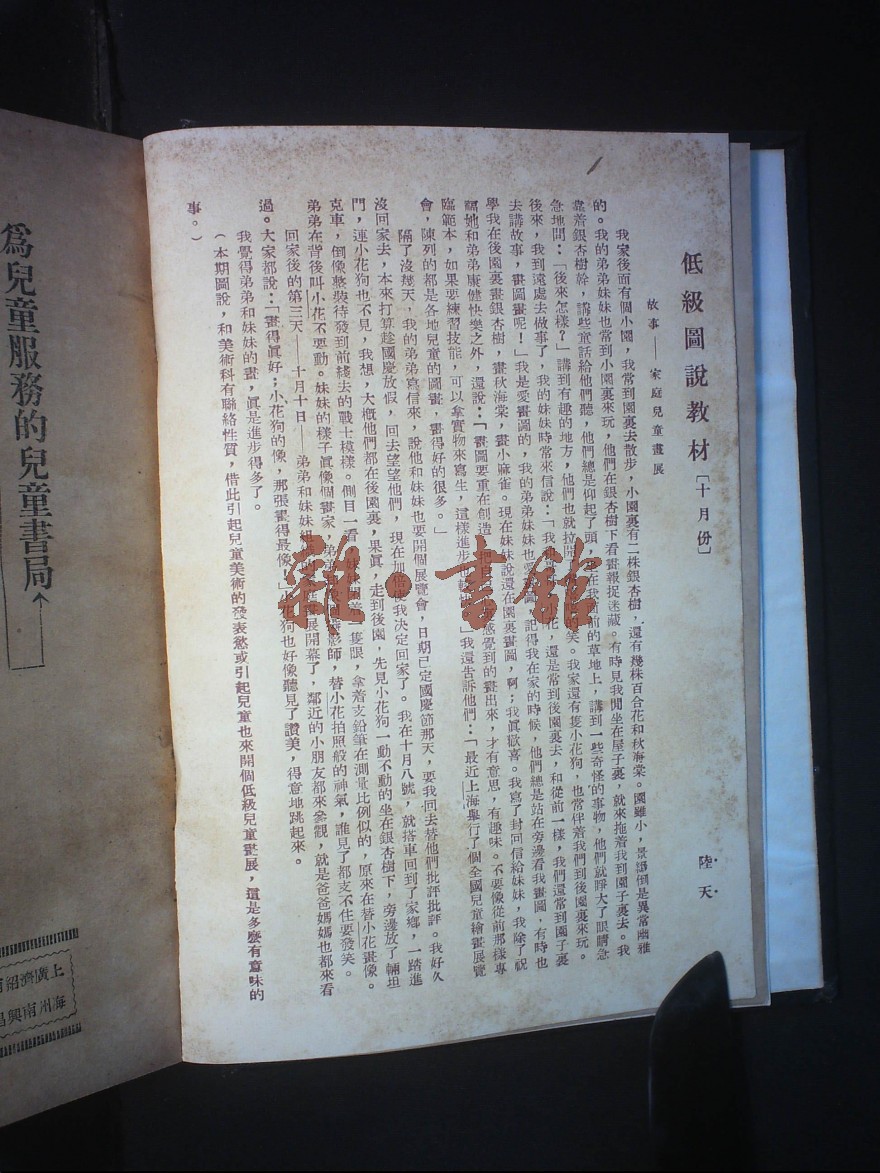 低級圖說教材〔十月份〕
陸天
故事——家庭兒童畫展
我家後面有個小園，我常到園裏去散步，小園裏有二株銀杏樹，還有幾株百合花和秋海棠。園雖小，景緻倒是異常幽雅
的。我的弟弟妹妹也常到小園裏來玩，他們在銀杏樹下看畫報捉迷藏。有時見我閒坐在屋子裏，就來拖着我到園子裏去。我
靠着銀杏樹幹，講些童話給他們聽，他們總是仰起了頭，在我前的草地上，講到一些奇怪的事物，他們就睜大了眼睛急
急地問：「後來怎樣？」講到有趣的地方，他們也就拉開笑。我家還有隻小花狗，也常伴着我們到後園裏來玩。
後來，我到遠處去做事了，我的妹妹時常來信說：「我花，還是常到後園裏去，和從前一樣，我們還常到園子裏
去講故事，畫圖畫呢！」我是愛畫圖的，我的弟弟妹妹也愛畫圖，記得我在家的時候，他們總是站在旁邊看我畫圖，有時也
學我在後園裏畫銀杏樹，畫秋海棠，畫小麻雀。現在妹妹說還在園裏畫圖，啊；我眞歡喜。我寫了封回信給妹妹，我除了祝
福她和弟弟康健快樂之外，還說：「畫圖要重在創造感覺到的畫出來，才有意思，有趣味。不要像從前那樣專
臨範本，如果要練習技能，可以拿實物來寫生，這樣進步」我還告訴他們：「最近上海舉行了個全國兒童繪畫展覽
會，陳列的都是各地兒童的圖畫，畫得好的很多。」
隔了沒幾天，我的弟弟寫信來，說他和妹妹也要開個展覽會，日期已定國慶節那天，要我回去替他們批評批評。我好久
沒回家去，本來打算趁國慶放假，回去望望他們，現在加倍使我決定回家了。我在十月八號，就搭車回到了家鄉，一踏進
門，連小花狗也不見，我想，大概他們都在後園裏，果眞，走到後園，先見小花狗一動不動的坐在銀杏樹下，旁邊放了輛坦
克車，倒像整裝待發到前綫去的戰士模樣。側目一看隻眼，拿着支鉛筆在測量比例似的，原來在替小花畫像。
弟弟在背後叫小花不要動。妹妹的樣子眞像個畫家，弟影師，替小花拍照般的神氣，誰見了都支不住要發笑。
回家後的第三天——十月十日——弟弟和妹妹展開幕了，鄰近的小朋友都來參觀，就是爸爸媽媽也都來看
過。大家都說：「畫得眞好；小花狗的像，那張畫得最像。」花狗也好像聽見了讚美，得意地跳起來。
我覺得弟弟和妹妹的畫，眞是進步得多了。
（本期圖說，和美術科有聯絡性質，借此引起兒童美術的發表慾或引起兒童也來開個低級兒童畫展，這是多麼有意味的
事。）
爲兒童服務的兒童書局
上廣濟紹南
海州南興昌
雜·書館